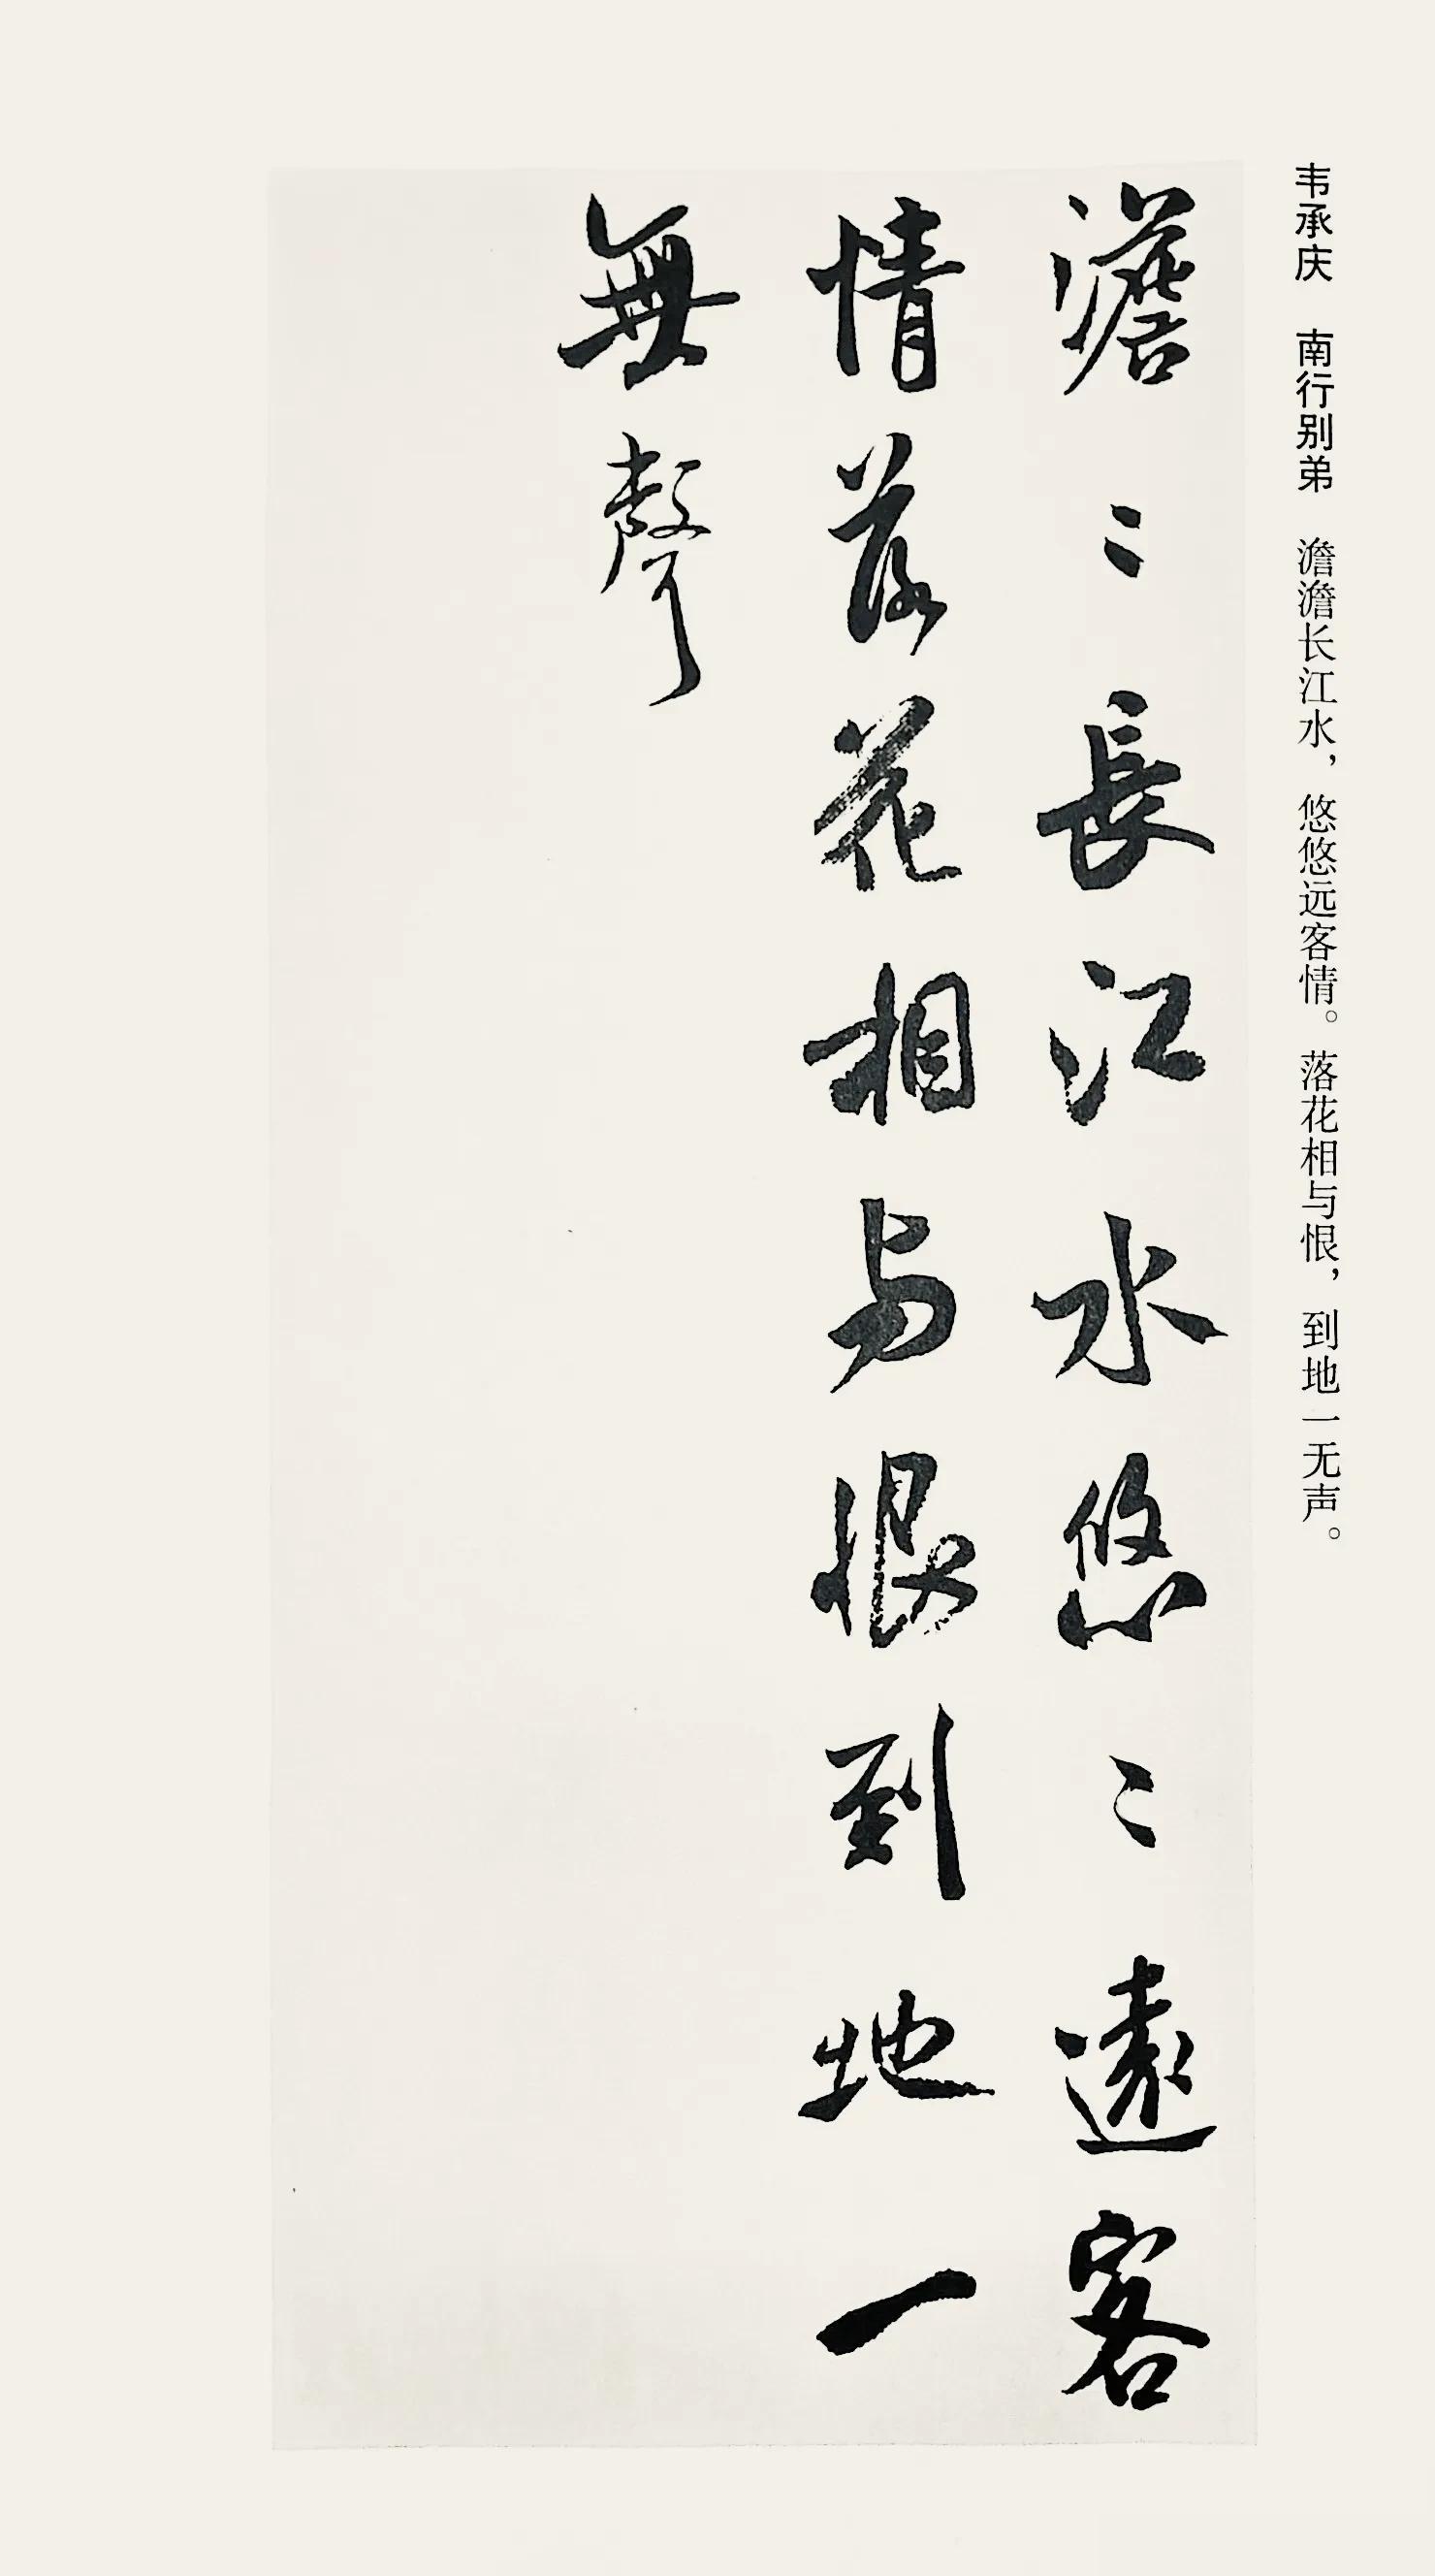 韦承庆　南行别弟　澹澹长江水，悠悠远客情。落花相与恨，到地一无声。
澹〻長江水悠〻遠客
情落花相与恨到地一
無聲